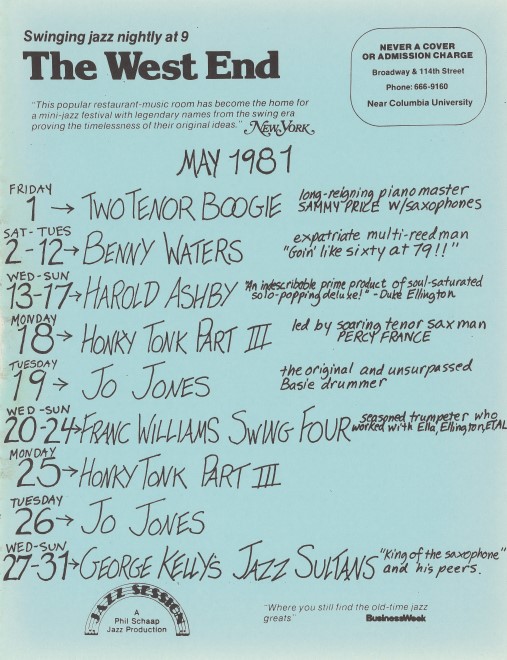 Swinging jazz nightly at 9
The West End
NEVER A COVER
OR ADMISSION CHARGE
Broadway & 114th Street
Phone: 666-9160
Near Columbia University
"This popular restaurant-music room has become the home for
a mini-jazz festival with legendary names from the swing era
proving the timelessness of their original ideas." NEW YORK
MAY 1981
FRIDAY
1 → TWO TENOR BOOGIE
long-reigning piano master
SAMMY PRICE w/saxophones
SAT-TUES
2-12 → BENNY WATERS
expatriate multi-reedman
"Goin' like sixty at 79!!"
WED-SUN
13-17 → HAROLD ASHBY
"An indescribable prime product of soul-saturated
solo-popping deluxe!" -Duke Ellington
MONDAY
18 → HONKY TONK PART III
led by soaring tenor sax man
PERCY FRANCE
TUESDAY
19 → JO JONES
the original and unsurpassed
Basie drummer
WED-SUN
20-24 → FRANC WILLIAMS SWING FOUR
seasoned trumpeter who
worked with Ella, Ellington, ET AL
MONDAY
25 → HONKY TONK PART III
TUESDAY
26 → JO JONES
WED-SUN
27-31 → GEORGE KELLY'S JAZZ SULTANS
"King of the saxophone"
and his peers.
JAZZ SESSION
A
Phil Schaap
Jazz Production
"Where you still find the old-time jazz
greats" BusinessWeek